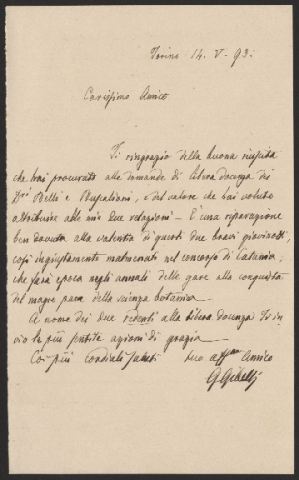 Torino 14. V. 93.
Carissimo Amico
Ti ringrazio della buona riuscita
che hai procurato alle domande di libera docenza dei
Dri Belli e Buscalioni, e del valore che hai voluto
attribuire alle mie due relazioni — È una riparazione
ben dovuta alla valentia di questi due bravi giovinotti,
così ingiustamente malmenati nel concorso di Catania;
che farà epoca negli annali delle gare alla conquista
del magro pane della scienza botanica —
A nome dei due redenti alla libera docenza Ti in-
vio le più sentite azioni di grazia —
Coi più cordiali saluti tuo affmo Amico
G Gibelli